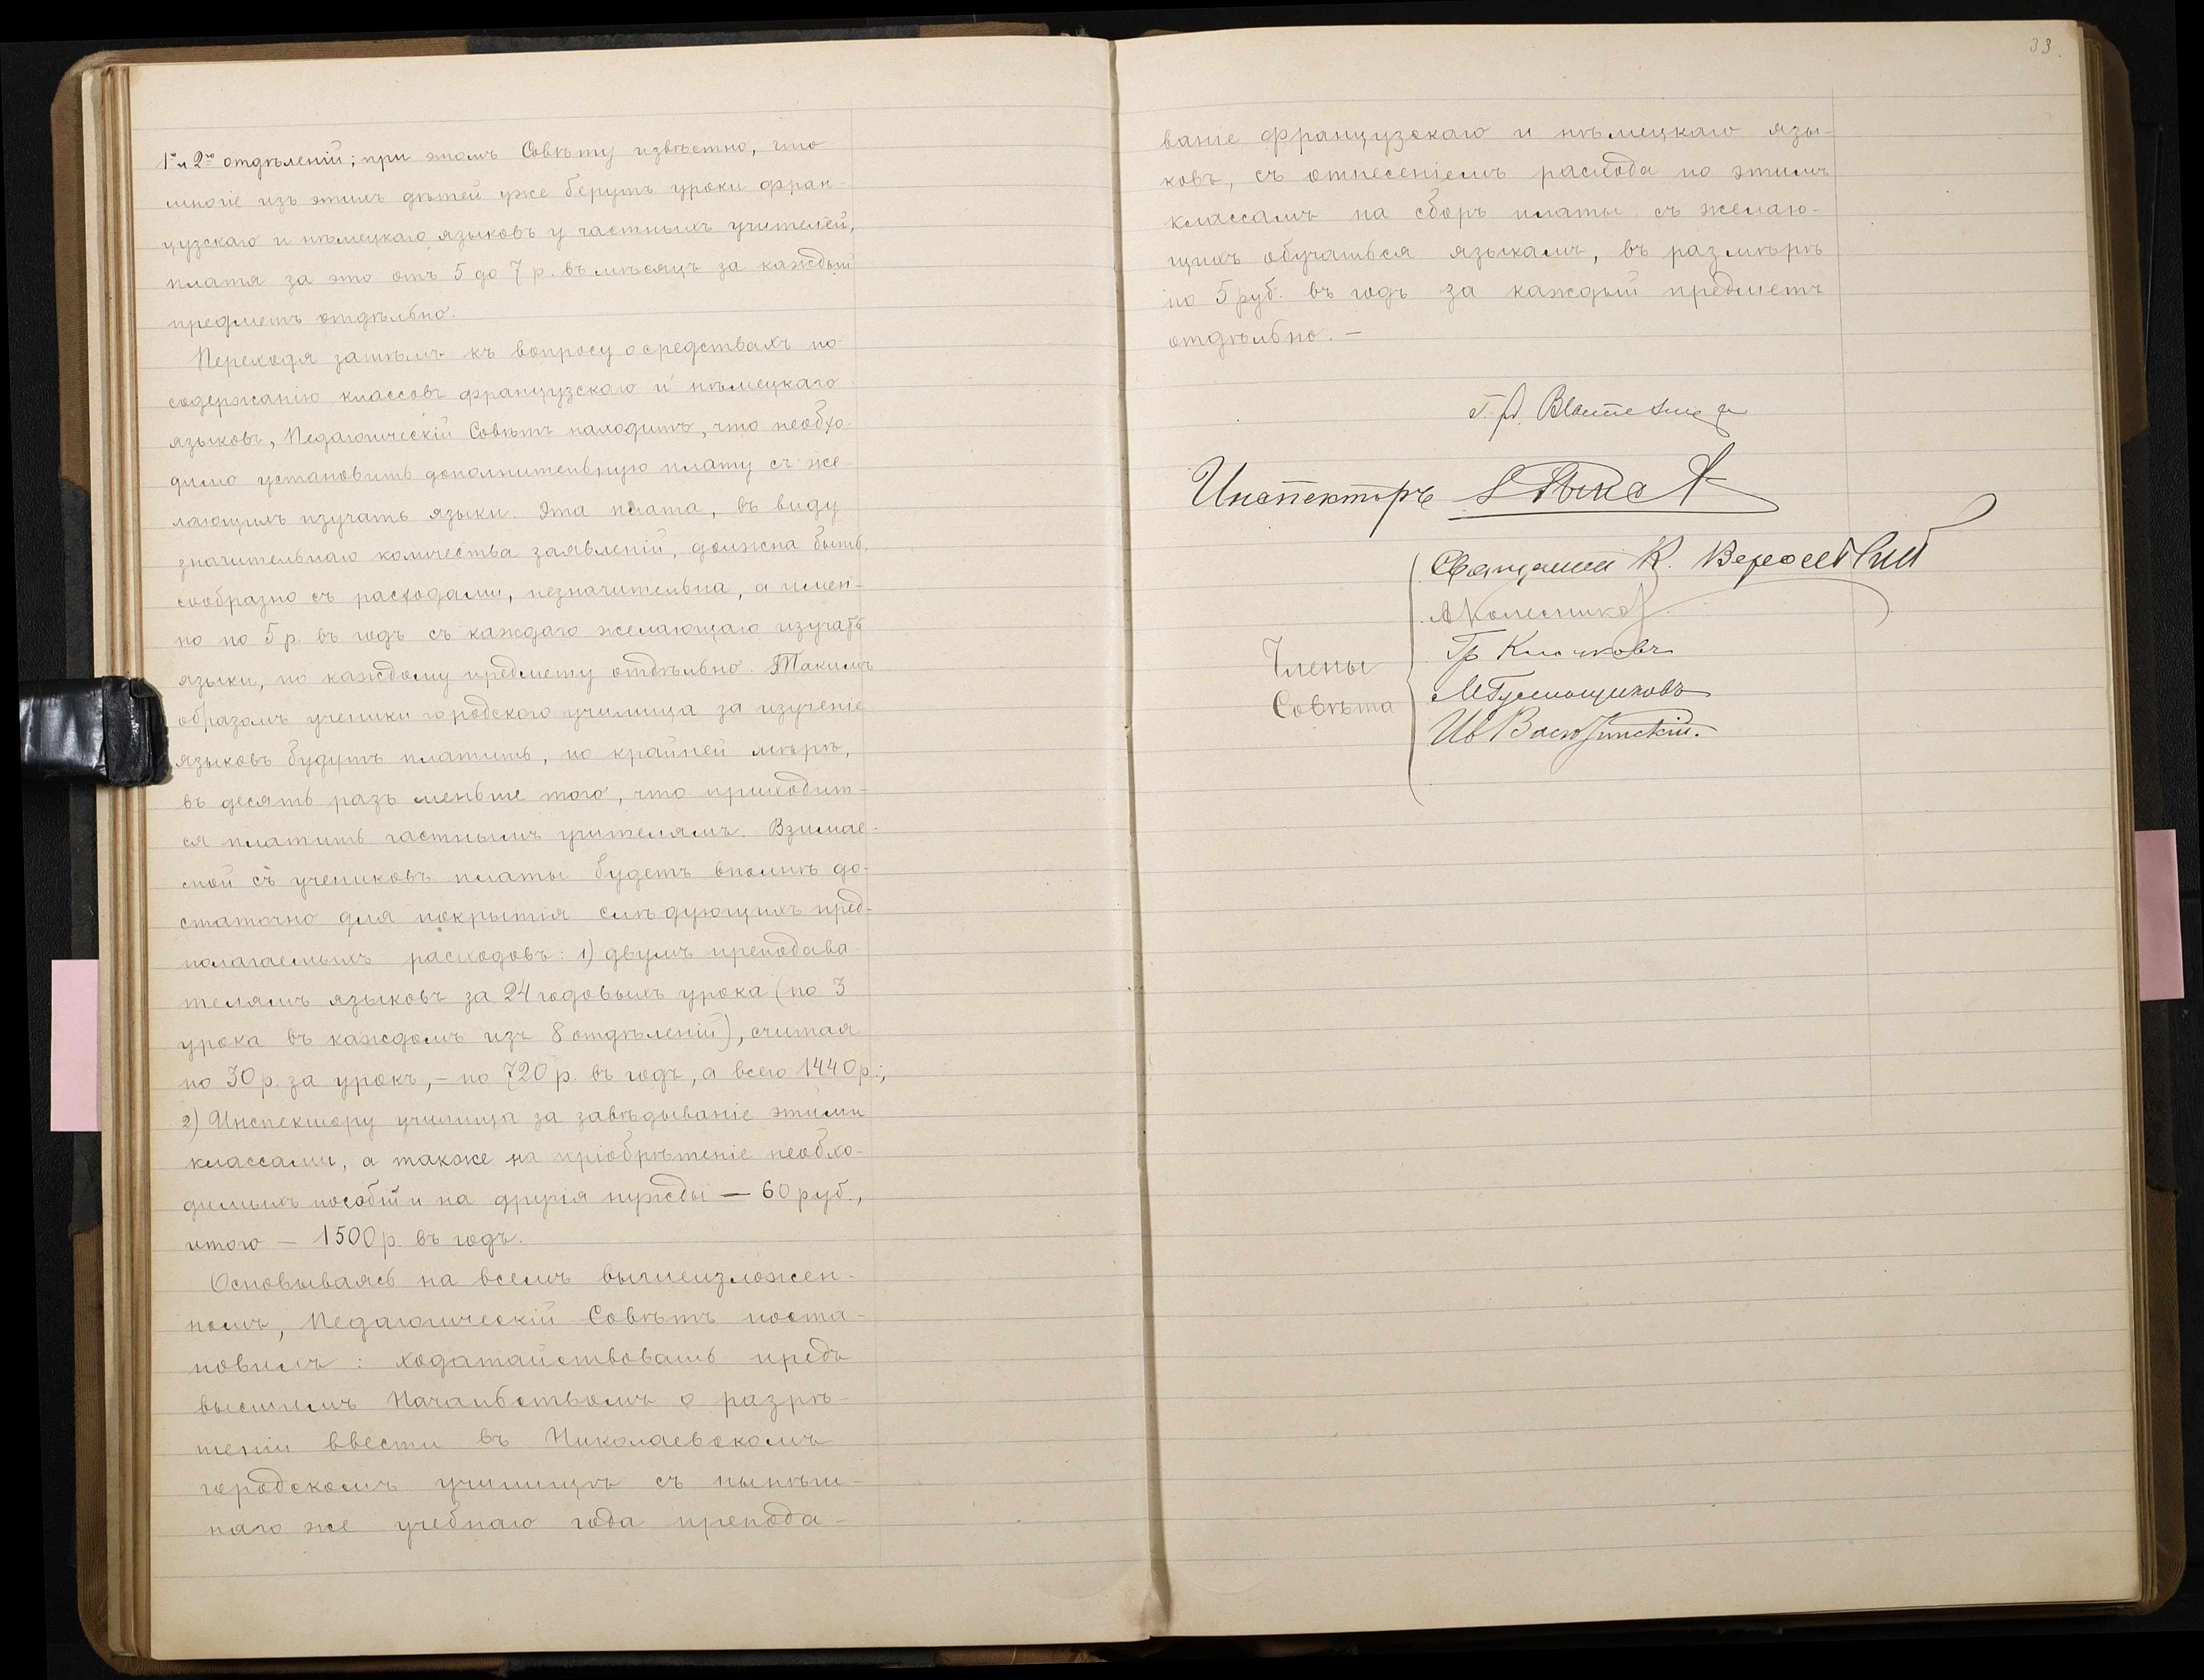 1го и 2го отдѣленій; при этомъ Совѣту извѣстно, что
многіе изъ этихъ дѣтей уже берутъ уроки фран-
цузскаго и нѣмецкаго языковъ у частныхъ учителей,
платя за это отъ 5 до 7 р. въ мѣсяцъ за каждый
предметъ отдѣльно.
Переходя затѣмъ къ вопросу о средствахъ по
содержанію классовъ французскаго и нѣмецкаго
языковъ, Педагогическій Совѣтъ находитъ, что необхо-
димо установить дополнительную плату съ же-
лающихъ изучать языки. Эта плата, въ виду
значительнаго количества заявленій, должна быть,
сообразно съ расходами, незначительна, а имен-
но по 5 р. въ годъ съ каждаго желающаго изучать
языки, по каждому предмету отдѣльно. Такимъ
образомъ ученики городского училища за изученіе
языковъ будутъ платить, по крайней мѣрѣ,
въ десять разъ меньше того, что приходит-
ся платить частнымъ учителямъ. Взимае-
мой съ учениковъ платы будетъ вполнѣ до-
статочно для покрытія слѣдующихъ пред-
полагаемыхъ расходовъ: 1) двумъ преподава-
телямъ языковъ за 24 годовыхъ урока (по 3
урока въ каждомъ изъ 8 отдѣленій), считая
по 30 р. за урокъ, – по 720 р. въ годъ, а всего 1440 р.;
2) Инспектору училища за завѣдываніе этими
классами, а также на пріобрѣтеніе необхо-
димыхъ пособій и на другія нужды — 60 руб.,
итого – 1500 р. въ годъ.
Основываясь на всемъ вышеизложен-
номъ, Педагогическій Совѣтъ поста-
новилъ: ходатайствовать предъ
высшимъ Начальствомъ о разрѣ-
шеніи ввести въ Николаевскомъ
городскомъ училищѣ съ нынѣш-
няго же учебнаго года препода-
33.
ваніе французскаго и нѣмецкаго язы-
ковъ, съ отнесеніемъ расхода по этимъ
классамъ на сборъ платы съ желаю-
щихъ обучаться языкамъ, въ размѣрѣ
по 5 руб. въ годъ за каждый предметъ
отдѣльно. –
Инспекторъ
Члены
Совѣта
Священникъ К.
А Колесниковъ
Гр Клочковъ
М
Ив